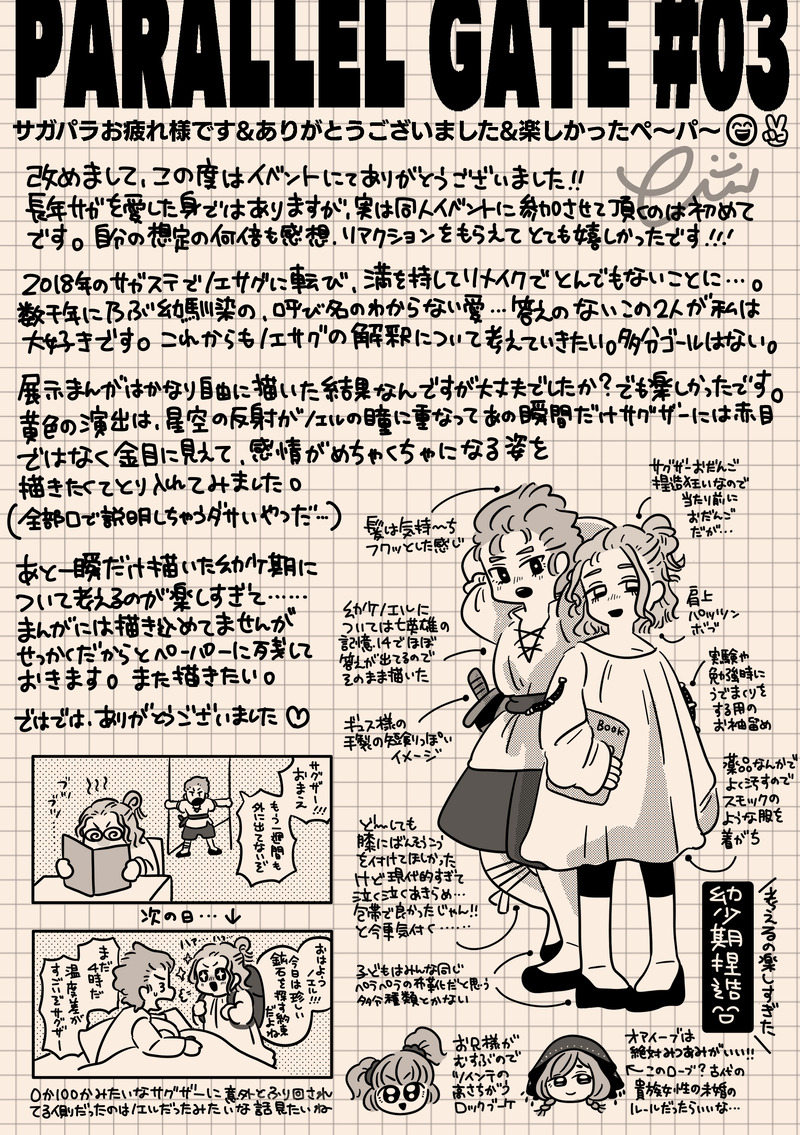 PARALLEL GATE #03
サガパラお疲れ様です&ありがとうございました&楽しかったペ〜パ〜
改めまして、この度はイベントにてありがとうございました!!
長年サガを愛した身ではありますが、実は同人イベントに参加させて頂くのは初めて
です。自分の想定の何倍も感想、リアクションをもらえてとても嬉しかったです!!!
2018年のサガステでノエサグに転び、満を持してリメイクでとんでもないことに…。
数千年に及ぶ幼馴染の、呼び名のわからない愛…答えのないこの2人が私は
大好きです。これからもノエサグの解釈について考えていきたい。多分ゴールはない。
展示まんがはかなり自由に描いた結果なんですが大丈夫でしたか?でも楽しかったです。
黄色の演出は、星空の反射がノエルの瞳に重なってあの瞬間だけサグザーには赤目
ではなく金目に見えて、感情がめちゃくちゃになる姿を
描きたくてとり入れてみました。
(全部口で説明しちゃうダサいやつだ…)
あと一瞬だけ描いた幼少期に
ついて考えるのが楽しすぎて……
まんがには描き込めてませんが
せっかくだからとペーパーに残して
おきます。また描きたい。
ではでは、ありがとうございました♡
サグザーおだんご
捏造狂いなので
当たり前に
おだんご
だが…
髪は気持〜ち
フワッとした感じ
肩上
パッツン
ボブ
幼少ノエルに
ついては七英雄の
記憶.14でほぼ
答えが出てるので
そのまま描いた
実験や
勉強時に
うでまくりを
する用の
お袖留め
ギュス様の
手製の短剣っぽい
イメージ
BOOK
薬品なんかで
よく汚すので
スモックの
ような服を
着がち
ど〜しても
膝にばんそうこう
を付けてほしかった
けど現代的すぎて
泣く泣くあきらめ…
包帯で良かったじゃん!!
と今更気付く……
子どもはみんな同じ
ペラペラの布靴だと思う
多分種類とかない
考えるの楽しすぎた
幼少期捏造
サグザー!!!
おまえ
もう一週間も
外に出てないぞ
ブツ
ブツ…
次の日…↓
おはよう
ノエル!!!
今日は珍しい
鉱石を探す約束
だよね
まだ
4時だ
温度差が
すごいぞサグザー
0か100かみたいなサグザーに意外とふり回され
てる側だったのはノエルだったみたいな話見たいね
お兄様が
むすぶので
ツインテの
高さちがう
ロックブーケ
オアイーブは
絶対みつあみがいい!!
←このローブ?古代の
貴族女性の未婚の
ルールだったらいいな…